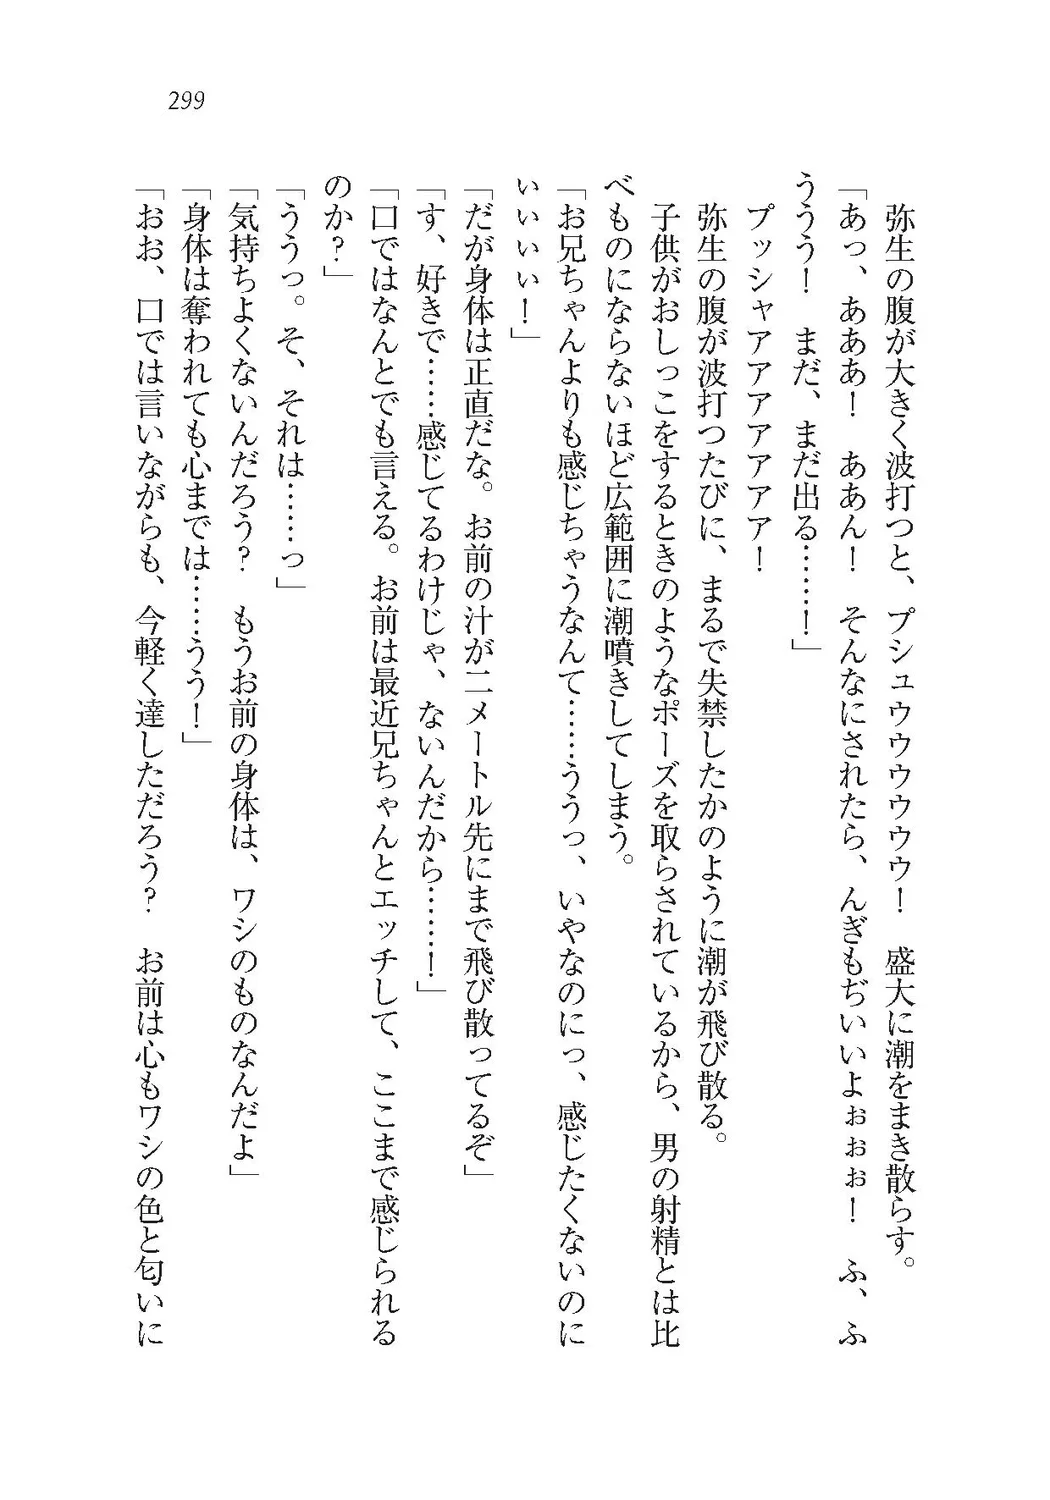 299
弥生の腹が大きく波打つと、プシュウウウウウウ！　盛大に潮をまき散らす。
「あっ、あああ！　ああん！　そんなにされたら、んぎもぢいいよぉぉぉ！　ふ、ふ
ううう！　まだ、まだ出る……！」
プッシャアアアアアアア！
弥生の腹が波打つたびに、まるで失禁したかのように潮が飛び散る。
子供がおしっこをするときのようなポーズを取らされているから、男の射精とは比
べものにならないほど広範囲に潮噴きしてしまう。
「お兄ちゃんよりも感じちゃうなんて……ううっ、いやなのにっ、感じたくないのに
ぃぃぃぃ！」
「だが身体は正直だな。お前の汁が二メートル先にまで飛び散ってるぞ」
「す、好きで……感じてるわけじゃ、ないんだから……！」
「口ではなんとでも言える。お前は最近兄ちゃんとエッチして、ここまで感じられる
のか？」
「ううっ。そ、それは……っ」
「気持ちよくないんだろう？　もうお前の身体は、ワシのものなんだよ」
「身体は奪われても心までは……うう！」
「おお、口では言いながらも、今軽く達しただろう？　お前は心もワシの色と匂いに